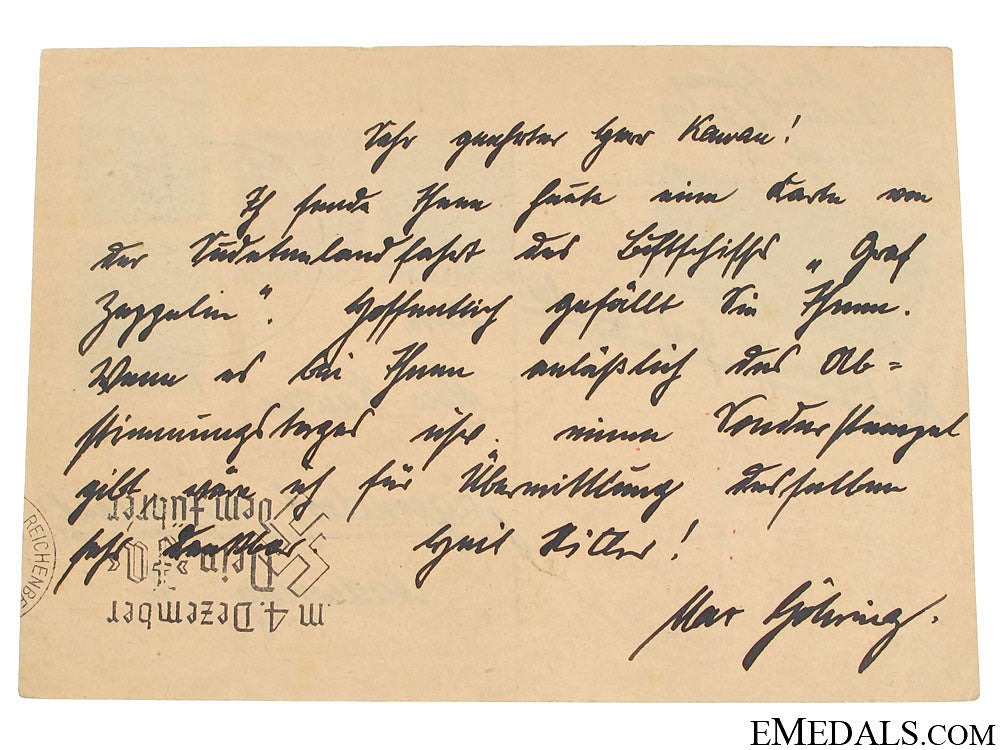 Sehr geehrter Herr Kawan!
Ich sende Ihnen heute eine Karte von
der Sudetenlandfahrt des Luftschiffs „Graf
Zeppelin“. Hoffentlich gefällt Sie Ihnen.
Wenn es bei Ihnen anläßlich des Ab=
stimmungstages usw. einen Sonderstempel
gibt wäre ich für Übermittlung desselben
sehr dankbar Heil Hitler!
Max Göhring.
m 4. Dezember
Dein »JA«
dem Führer
REICHENBE
EMEDALS.COM